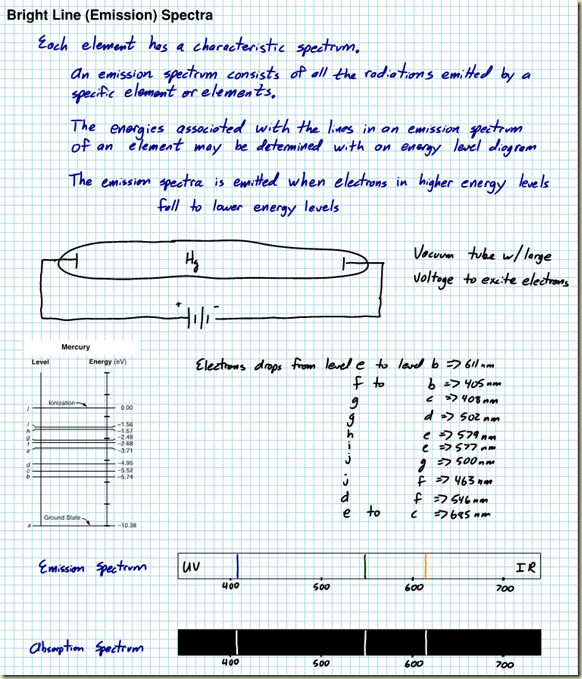 Bright Line (Emission) Spectra
Each element has a characteristic spectrum.
An emission spectrum consists of all the radiations emitted by a
specific element or elements.
The energies associated with the lines in an emission spectrum
of an element may be determined with an energy level diagram
The emission spectra is emitted when electrons in higher energy levels
fall to lower energy levels
Hg
+ -
Vacuum tube w/large
voltage to excite electrons
Mercury
Level Energy (eV)
Ionization
j 0.00
i -1.56
h -1.57
g -2.48
f -2.68
e -3.71
d -4.95
c -5.52
b -5.74
Ground State
a -10.38
Electrons drops from level e to level b => 611 nm
f to b => 405 nm
g c => 408 nm
g d => 502 nm
h e => 579 nm
i e => 577 nm
j g => 500 nm
j f => 463 nm
d f => 546 nm
e to c => 685 nm
Emission Spectrum
UV IR
400 500 600 700
Absorption Spectrum
400 600 700